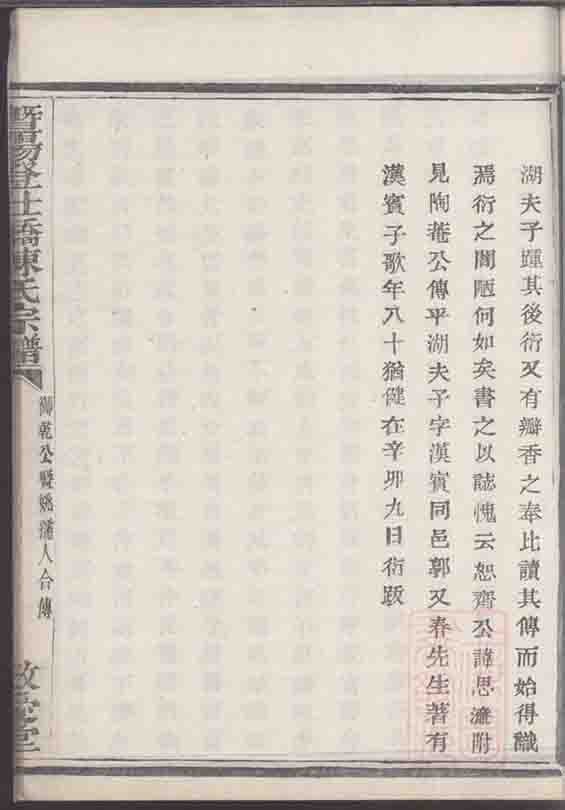 湖夫子踵其後衍又有瓣香之奉比讀其傳而始得識
焉衍之聞陋何如矣書之以誌愧云恕齋公諱思濂附
見陶菴公傳平湖夫子字漢賓同邑郭又春先生著有
漢賓子歌年八十猶健在辛卯九日衍跋
暨陽登仕橋陳氏宗譜
御乾公暨姚孺人合傳